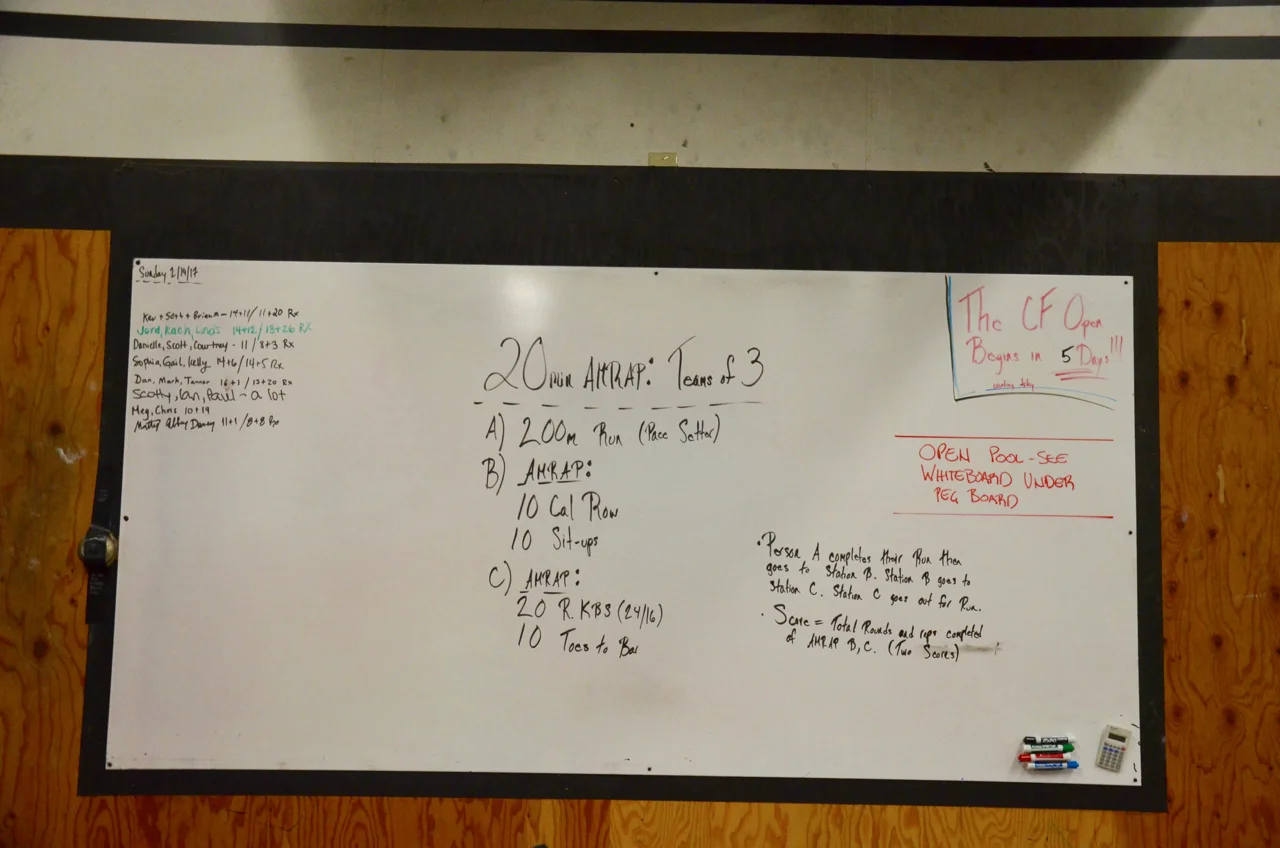 Sunday 2/19/17
Kev + Seth + Briana - 14+11/ 11+20 Rx
Jord, Rach, Linds 14+12 / 13+26 Rx
Danielle, Scott, Courtney - 11 / 8+3 Rx
Sophia, Gail, Kelly 14+6 / 14+5 Rx
Dan, Mark, Tanner 16+1 / 13+20 Rx
Scotty, Ian, Paul - a lot
Meg, Chris 10+19
11+1 / 8+8 Rx
20 min AMRAP: Teams of 3
A) 200m Run (Pace Setter)
B) AMRAP:
10 Cal Row
10 Sit-ups
C) AMRAP:
20 R. KBS (24/16)
10 Toes to Bar
The CF Open
Begins in 5 Days!!!
counting today
OPEN POOL - SEE
WHITEBOARD UNDER
PEG BOARD
• Person A completes their Run then
goes to Station B. Station B goes to
Station C. Station C goes out for Run.
• Score = Total Rounds and reps completed
of AMRAP B, C. (Two Scores)